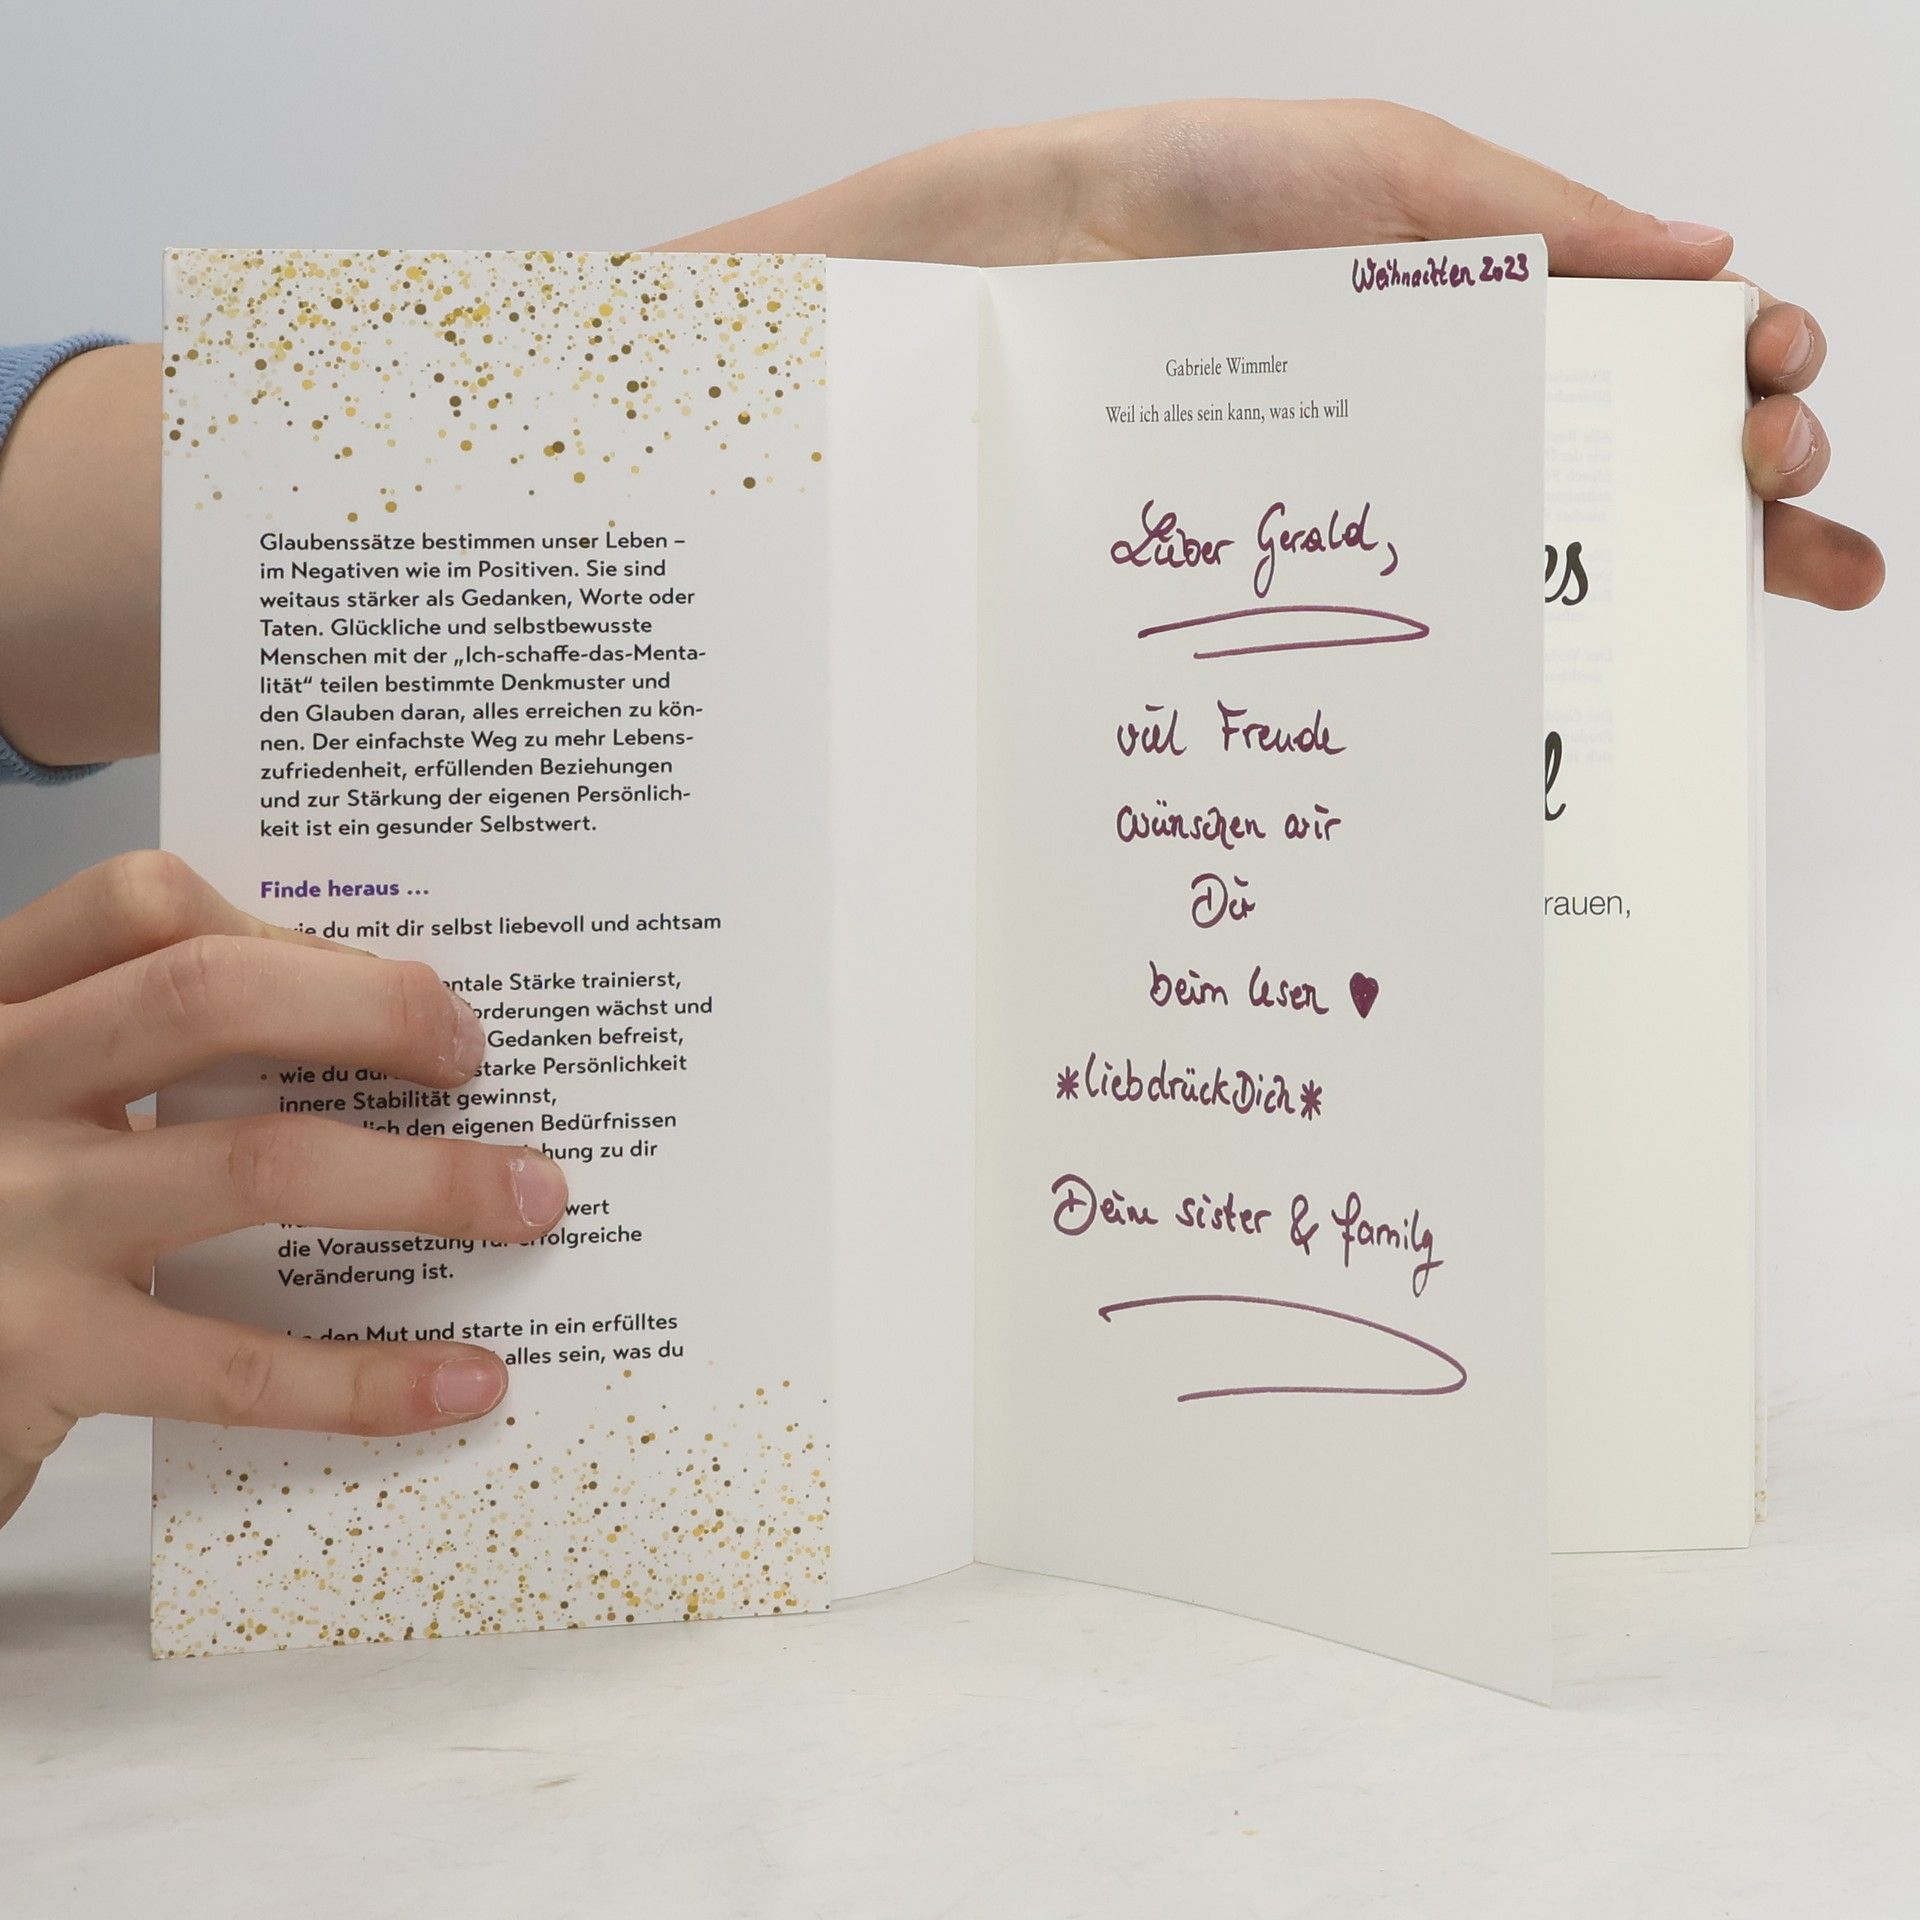 Glaubenssätze bestimmen unser Leben –
im Negativen wie im Positiven. Sie sind
weitaus stärker als Gedanken, Worte oder
Taten. Glückliche und selbstbewusste
Menschen mit der „Ich-schaffe-das-Menta-
lität“ teilen bestimmte Denkmuster und
den Glauben daran, alles erreichen zu kön-
nen. Der einfachste Weg zu mehr Lebens-
zufriedenheit, erfüllenden Beziehungen
und zur Stärkung der eigenen Persönlich-
keit ist ein gesunder Selbstwert.
Finde heraus ...
du mit dir selbst liebevoll und achtsam
Stärke trainierst,
wächst und
Gedanken befreist,
• wie du starke Persönlichkeit
innere Stabilität gewinnst,
den eigenen Bedürfnissen
zu dir
die Voraussetzung
Veränderung ist.
den Mut und starte in ein erfülltes
alles sein, was du
Weihnachten 2023
Gabriele Wimmler
Weil ich alles sein kann, was ich will
Lieber Gerald,
viel Freude
wünschen wir
Dir
beim lesen ♥
*liebdrückDich*
Deine sister & family
rauen,